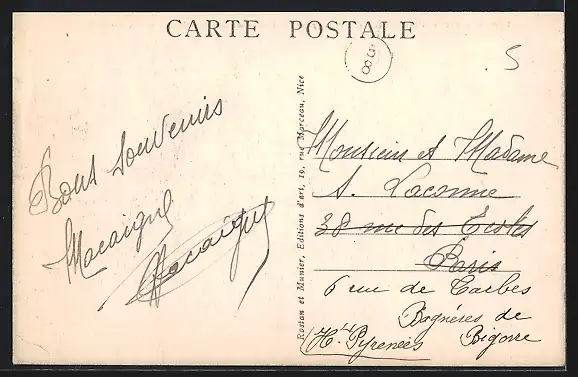 CARTE POSTALE
88
5
Bons souvenirs
Macaigne
Macaigne
Rostan et Munier, Editions d'art, 19, rue Marceau, Nice
Monsieur et Madame
A. Laconne
38 rue des Ecoles
Paris
6 rue de Tarbes
Bagnères de
Bigorre
(Htes Pyrenées